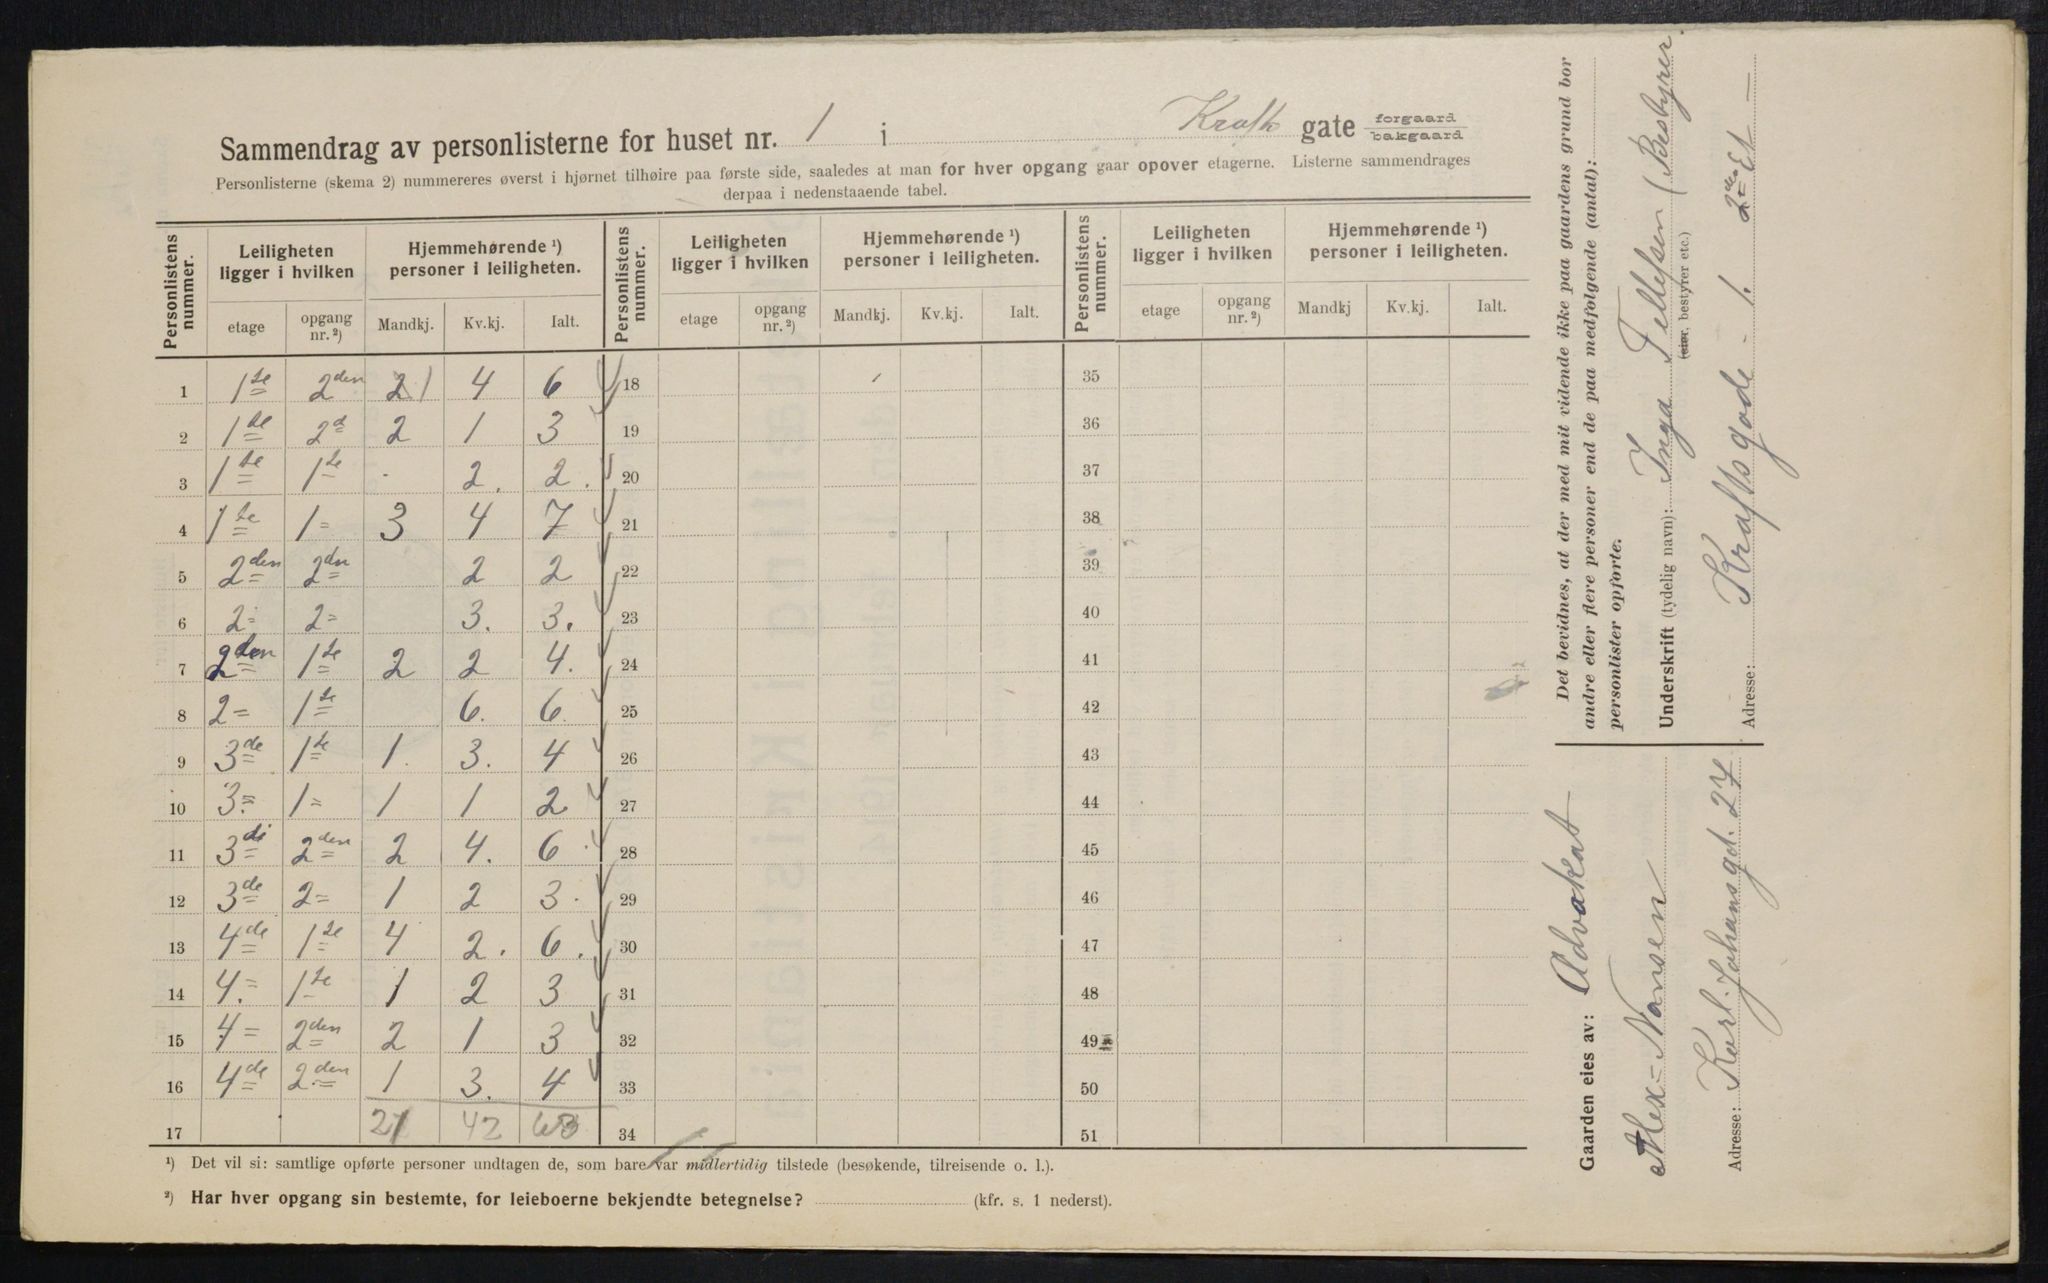 Sammendrag av personlisterne for huset nr. 1 i Krafts gate forgaard bakgaard
Personlisterne (skema 2) nummereres øverst i hjørnet tilhøire paa første side, saaledes at man for hver opgang gaar opover etagerne. Listerne sammendrages
derpaa i nedenstaaende tabel.
Personlistens nummer. Leiligheten ligger i hvilken Hjemmehørende ¹) personer i leiligheten. Personlistens nummer. Leiligheten ligger i hvilken Hjemmehørende ¹) personer i leiligheten. Personlistens nummer. Leiligheten ligger i hvilken Hjemmehørende ¹) personer i leiligheten.
etage opgang nr. ²) Mandkj. Kv.kj. Ialt. etage opgang nr. ²) Mandkj. Kv.kj. Ialt. etage opgang nr. ²) Mandkj Kv.kj. Ialt.
1 1ste 2den 2 4 6 18 35
2 1ste 2d 2 1 3 19 36
3 1ste 1ste - 2. 2. 20 37
4 1ste 1= 3 4 7 21 38
5 2den 2den 2 2 22 39
6 2= 2= 3. 3. 23 40
7 2den 1ste 2 2 4. 24 41
8 2= 1ste 6. 6. 25 42
9 3de 1ste 1. 3. 4 26 43
10 3.= 1= 1 1 2 27 44
11 3di 2den 2 4. 6. 28 45
12 3de 2= 1 2 3. 29 46
13 4de 1ste 4 2. 6. 30 47
14 4.= 1ste 1 2 3 31 48
15 4= 2den 2 1 3 32 49
16 4de 2den 1 3. 4 33 50
17 21 42 63 34 51
¹) Det vil si: samtlige opførte personer undtagen de, som bare var midlertidig tilstede (besøkende, tilreisende o. l.).
²) Har hver opgang sin bestemte, for leieboerne bekjendte betegnelse? (kfr. s. 1 nederst).
Det bevidnes, at der med mit vidende ikke paa gaardens grund bor
andre eller flere personer end de paa medfølgende (antal):
personlister opførte.
Underskrift (tydelig navn): Inga Tellefsen (Bestyrer.
(eier, bestyrer etc.)
Adresse: Kraftsgade - 1. 2den Et -
Gaarden eies av: Advokat
Alex= Nansen
Adresse: Karl-Johansgd. 27